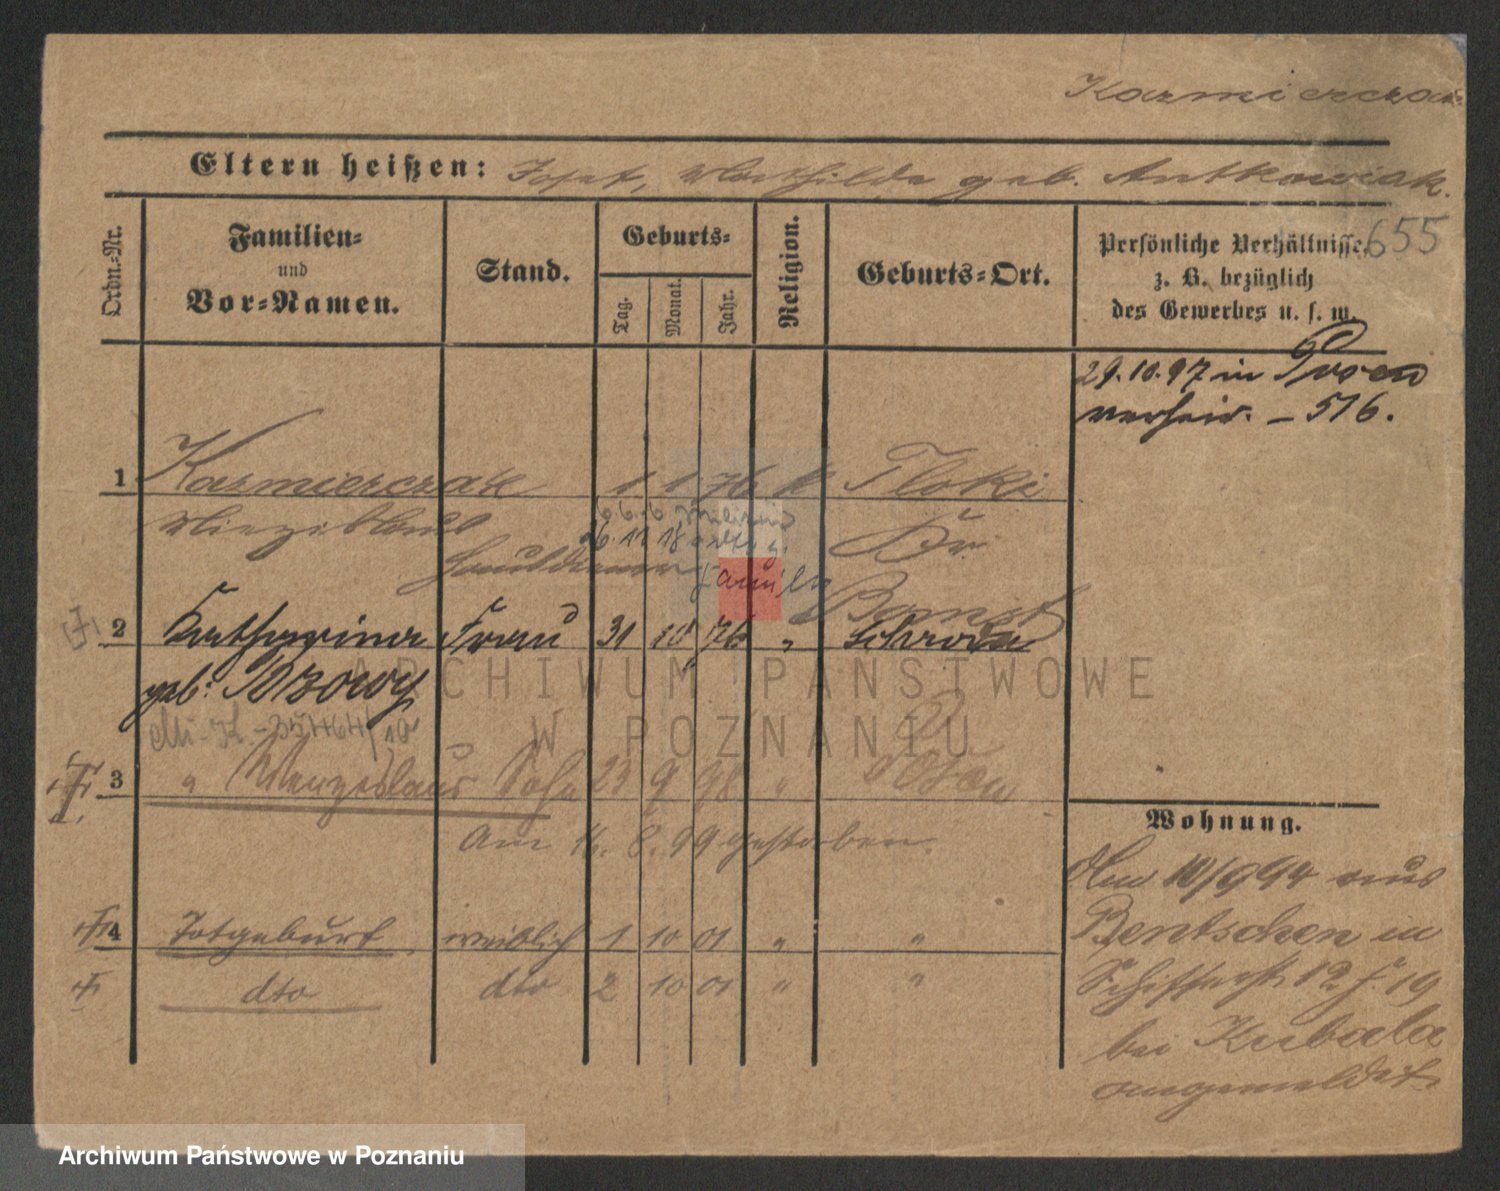 Kazmierczak
Eltern heißen: Josef, Mathilde geb. Antkowiak.
655
Ordn.-Nr.
Familien-
und
Vor-Namen.
Stand.
Geburts-
Tag.
Monat.
Jahr.
Religion.
Geburts-Ort.
Persönliche Verhältnisse
z. B. bezüglich
des Gewerbes u. s. w.
29.10.97 in Posen
verheir. - 516.
1 Kazmierczak 1 1 76 k Floki
Kr.
Familie
Bomst
2 Katharina Frau 31 10 76 " Schroda
geb.
3 " Wenzeslaus Sohn 23 9 98 " Posen
Am 16. 8. 99 gestorben.
4 Totgeburt weiblich 1 10 01 " "
dto dto 2 10 01 " "
Wohnung.
Am 10/9 94 aus
Bentschen in
12
bei Kubala
angemeldet
ARCHIWUM PAŃSTWOWE
W POZNANIU
Archiwum Państwowe w Poznaniu